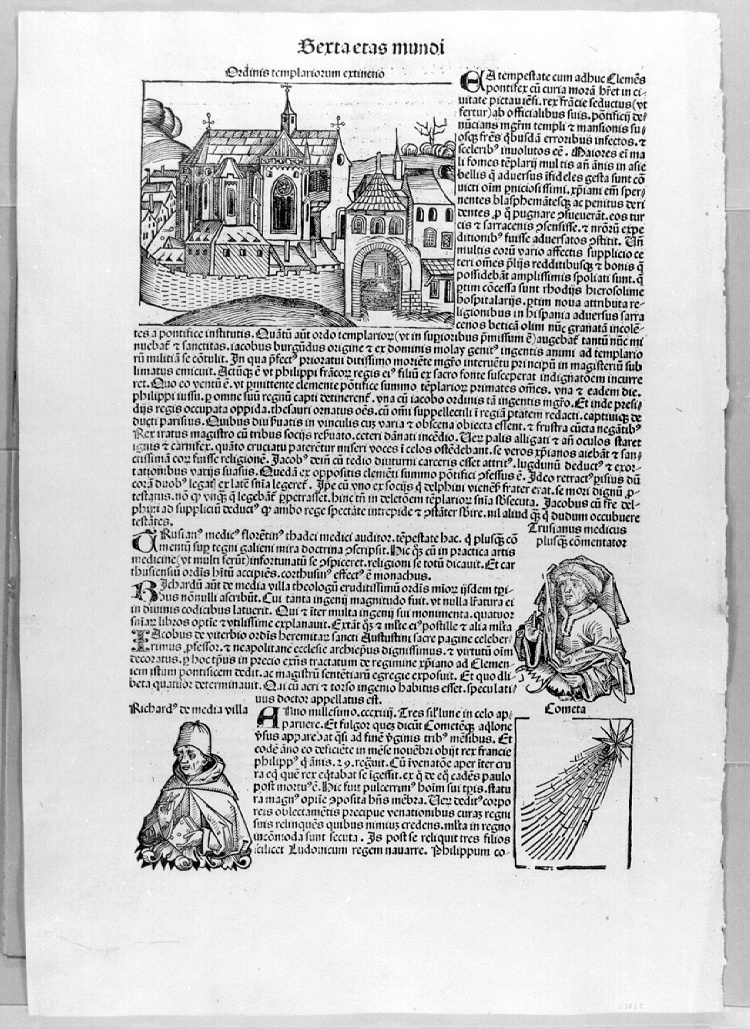 Sexta etas mundi
Ordinis templariorum extinctio
EA tempestate cum adhuc Clemēs
pontifex cū curia morā hret in ci-
uitate pictauiēsi. rex frācie seductus (vt
fertur) ab officialibus suis. pōtificij de-
nūcians mgrm templi & mansionis su-
osqʒ frēs qbusdā erroribus infectos. &
sceleribꝰ inuolutos eē. Maiores eī ma
li fomes tēplarij multis añ ānis in asie
bellis q̄ aduersus īfideles gesta sunt cō
uicti oīm pniciosissimi. xpiani em̄ sper-
nentes blasphemātesqʒ ac penitus deri
dentes, p q̄ pugnare ꝯsueuerāt. eos tur
cis & sarracenis ꝯsensisse. & nrōrū expe
ditionibꝰ fuisse aduersatos ꝯstitit. Uñ
multis corū vario affectis supplicio ce
teri oēs plijs redditibusqʒ & bonis q̄
possidebāt amplissimis spoliati sunt. q̄
ptim cōcessa sunt rhodijs hierosolime
hospitalarijs. ptim noua attributa re-
ligionibus in hispania aduersus sarra
cenos betica olim nūc granata incolē-
tes a pontifice institutis. Quātū aūt ordo templarioꝝ (vt in supioribus p̄missum ē) augebat tantū nūc mi
nuebat & sanctitas. iacobus burgūdus origine & ex dominis molay genitꝰ ingentis animi ad templario
rū militiā se cōtulit. In qua pfectꝰ prioratui ditissimo moriēte mgro interuētu principū in magisteriū sub
limatus emicuit. Actūqʒ ē vt philippi frācoꝝ regis eiꝰ filiū ex sacro fonte susceperat indignatōem incurre
ret. Quo eo ventū ē. vt pmittente clemente pōtifice summo tēplarior primates oēs. vna & eadem die.
philippi iussu. p omne suū regnū capti detinerent. vna cū iacobo ordinis tā ingentis mgro. Et inde presi-
dijs regis occupata oppida. thesauri ornatus oēs. cū omi suppellectili ī regiā ptātem redacti. captiuiqʒ de
ducti parisius. Quibus diu suatis in vinculis cuʒ varia & obscena obiecta essent. & frustra cūcta negātibꝰ
Rex iratus magistro cū tribus socijs reseruato. ceteri dānati incēdio. Uez palis alligati & añ oculos staret
ignis & carnifex. quāto cruciatu paterētur miseri voces ī celos ostēdebant. se veros xpianos aiebāt & san-
ctissimā eoꝝ fuisse religionē. Jacobꝰ dein̄ cū tedio diuturni carceris esset attritꝰ. lugdunū deductꝰ & exor-
tationibus varijs suasus. Quedā ex oppositis clemēti summo pōtifici pfessus ē. Ideo retractꝰ pisius dū
corā duobꝰ legat & ex late snia legeret. Ipe cū vno ex socijs q delphini viennēꝭ frater erat. se mori dignū p-
testatus. nō qꝛ vnqʒ q̄ legebāt ppetrasset. hinc tn̄ in deletōem tēplarioꝝ snia sbsecuta. Jacobus cū fre del-
phini ad suppliciū deductꝰ ambo rege spectāte intrepide & ꝯstāter sbire. nil aliud qʒ q̄ dudum occubuere
testātes.
Trusianus medicus
plusqʒ cōmentator
TRusianꝰ medicꝰ florētinꝰ thadei medici auditor. tēpestate hac. q plusqʒ cō
mentū sup tegni galieni mira doctrina ꝯscripsit. Hic qʒ cū in practica artis
medicine (vt multi ferūt) infortunatū se ꝯspiceret. religioni se totū dicauit. Et car
thusiensiū ordīs hītū accipiēs. corthusiensꝭ effectꝰ ē monachus.
RIchardū aūt de media villa theologū eruditissimū ordis mioꝝ ijsdem tpi-
bus nōnulli ascribūt. Cui tanta ingenij magnitudo fuit. vt nulla lratura ei
in diuinis codicibus latuerit. Qui & iter multa ingenij sui monimenta. quatuor
sniaꝝ libros optīe & vtilissime explanauit. Extāt qʒ & in scte eiꝰ postille & alia mlta
IAcobus de viterbio ordīs heremitaꝝ sancti Augustini sacre pagine celeber-
rimus pfessor. & neapolitane ecclesie archiepus dignissimus. & virtutū oīm
decoratus. p hoc tpus in precio exñs tractatum de regimine xpiano ad Clemen-
tem istum pontificem dedit. ac magistrū sentētiarū egregie exposuit. Et quo dli-
beta quatuor determinauit. Qui cū acri & torso ingenio habitus esset. speculati-
uus doctor appellatus est.
Richardꝰ de media villa
Cometa
ANno millesimo. cccxiiij. Tres sill'lune in celo ap-
paruere. Et fulgor queʒ dicūt Cometēqʒ aqlone
ꝟsus apparebat qsi ad finē ꝟginis tribꝰ mēsibus. Et
codē āno eo deficiēte in mēse nouēbri obijt rex francie
philippꝰ q ānis. 29. regūit. Cū ī venatōe aper iter cru
ra eq que rex eqtabat se igessit. ex q de eq cadēs paulo
post mortuꝰ ē. Hic fuit pulcerrimꝰ hoim sui tpis. statu
ra magnꝰ optīe ꝯposita hñs mēbra. Uez deditꝰ corpo
reis oblectamētis precipue venationibus curaʒ regni
suis relinquēs quibus nimiuʒ credens. mlta in regno
incōmoda sunt secuta. Is post se reliquit tres filios
scilicet Ludouicum regem nauarre. Philippum co-